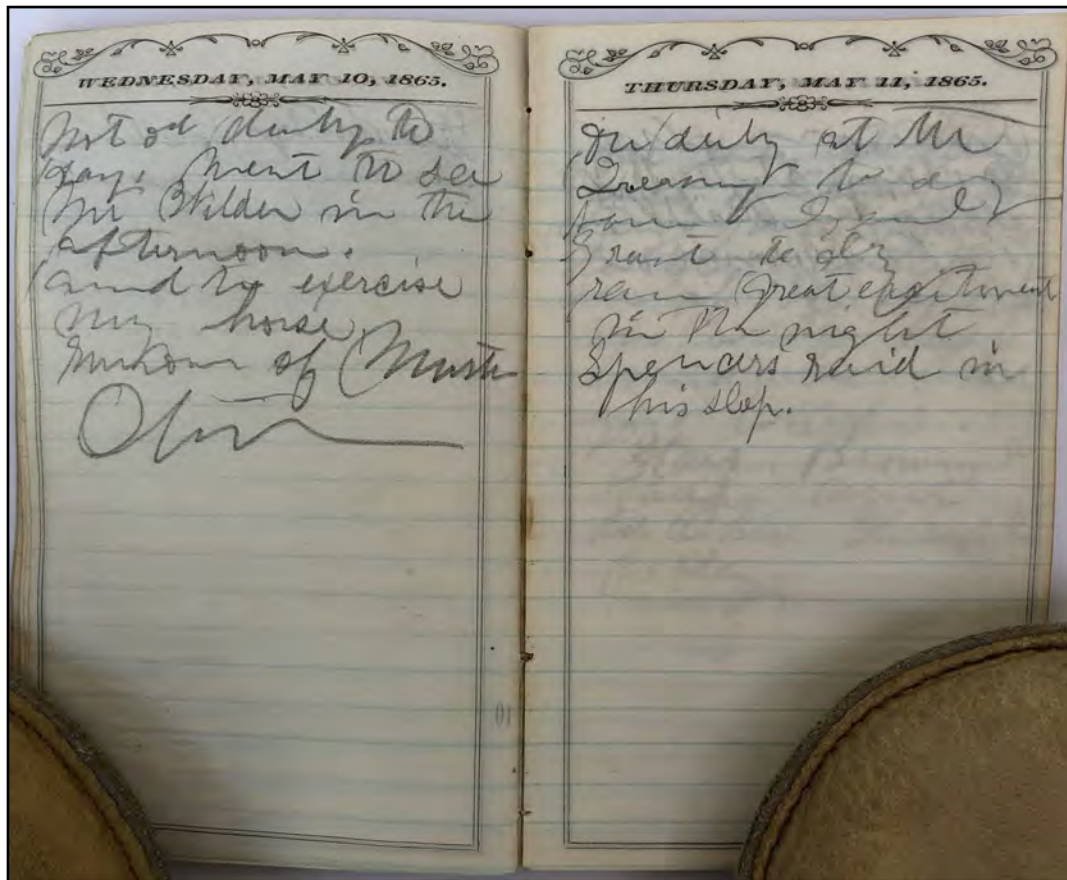 WEDNESDAY, MAY 10, 1865.
Not on duty to
day. Went to see
Mr in the
afternoon.
and to exercise
my horse.
of Muster
THURSDAY, MAY 11, 1865.
On duty at the
Treasury to day
Grant to day
rain Great excitement
in the night
Spencers raid in
his slop.